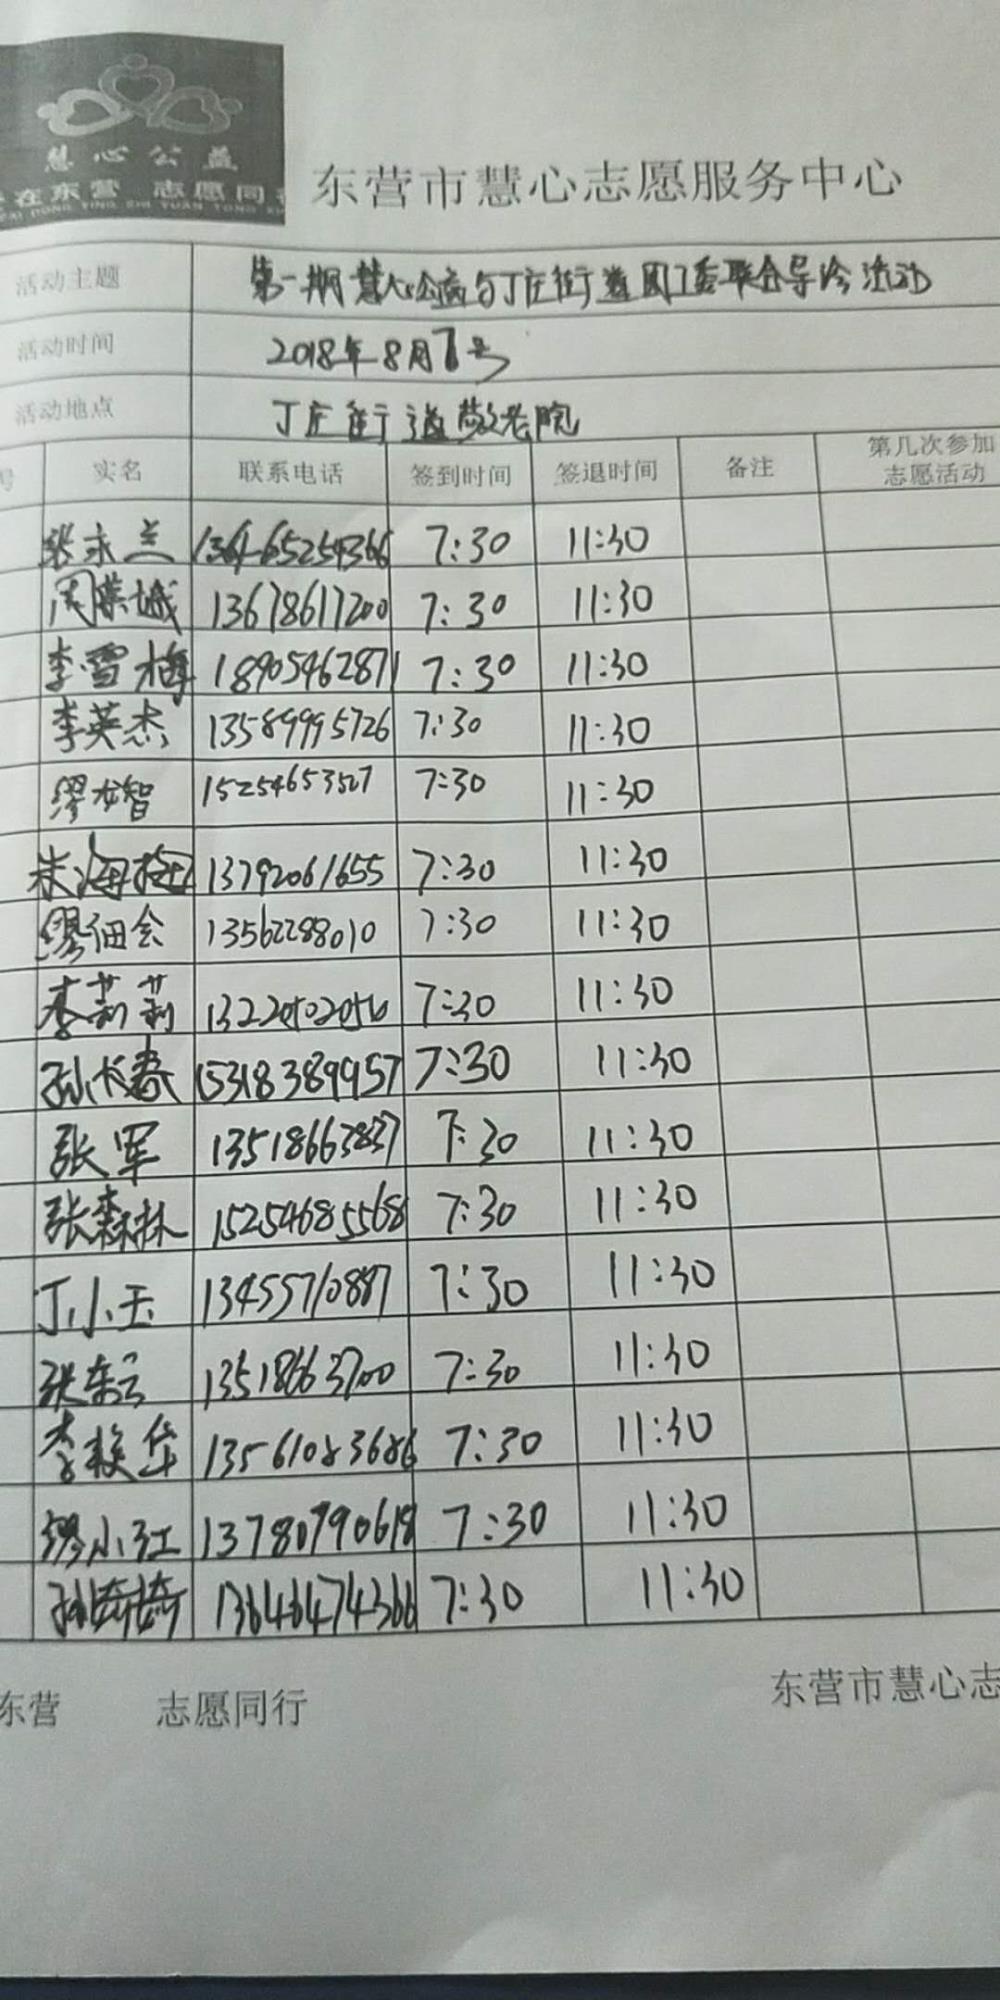 慧心公益
在东营 志愿同
东营市慧心志愿服务中心
活动主题 第一期慧心公益与丁庄街道团工委联合 活动
活动时间 2018年8月1号
活动地点 丁庄街道敬老院
号 实名 联系电话 签到时间 签退时间 备注 第几次参加
志愿活动
张永兰 7:30 11:30
周 城 13678617200 7:30 11:30
李雪梅 18905462871 7:30 11:30
李英杰 13589995726 7:30 11:30
缪 智 15254653507 7:30 11:30
朱海梅 13792061655 7:30 11:30
缪佃会 13562288010 7:30 11:30
李莉莉 7:30 11:30
孙长春 15318389957 7:30 11:30
张军 13518663837 7:30 11:30
张森林 15254685568 7:30 11:30
丁小玉 13455710887 7:30 11:30
张东云 13518663700 7:30 11:30
李 华 13561083686 7:30 11:30
缪小红 13780790618 7:30 11:30
孙椅椅 13646474366 7:30 11:30
东营 志愿同行 东营市慧心志